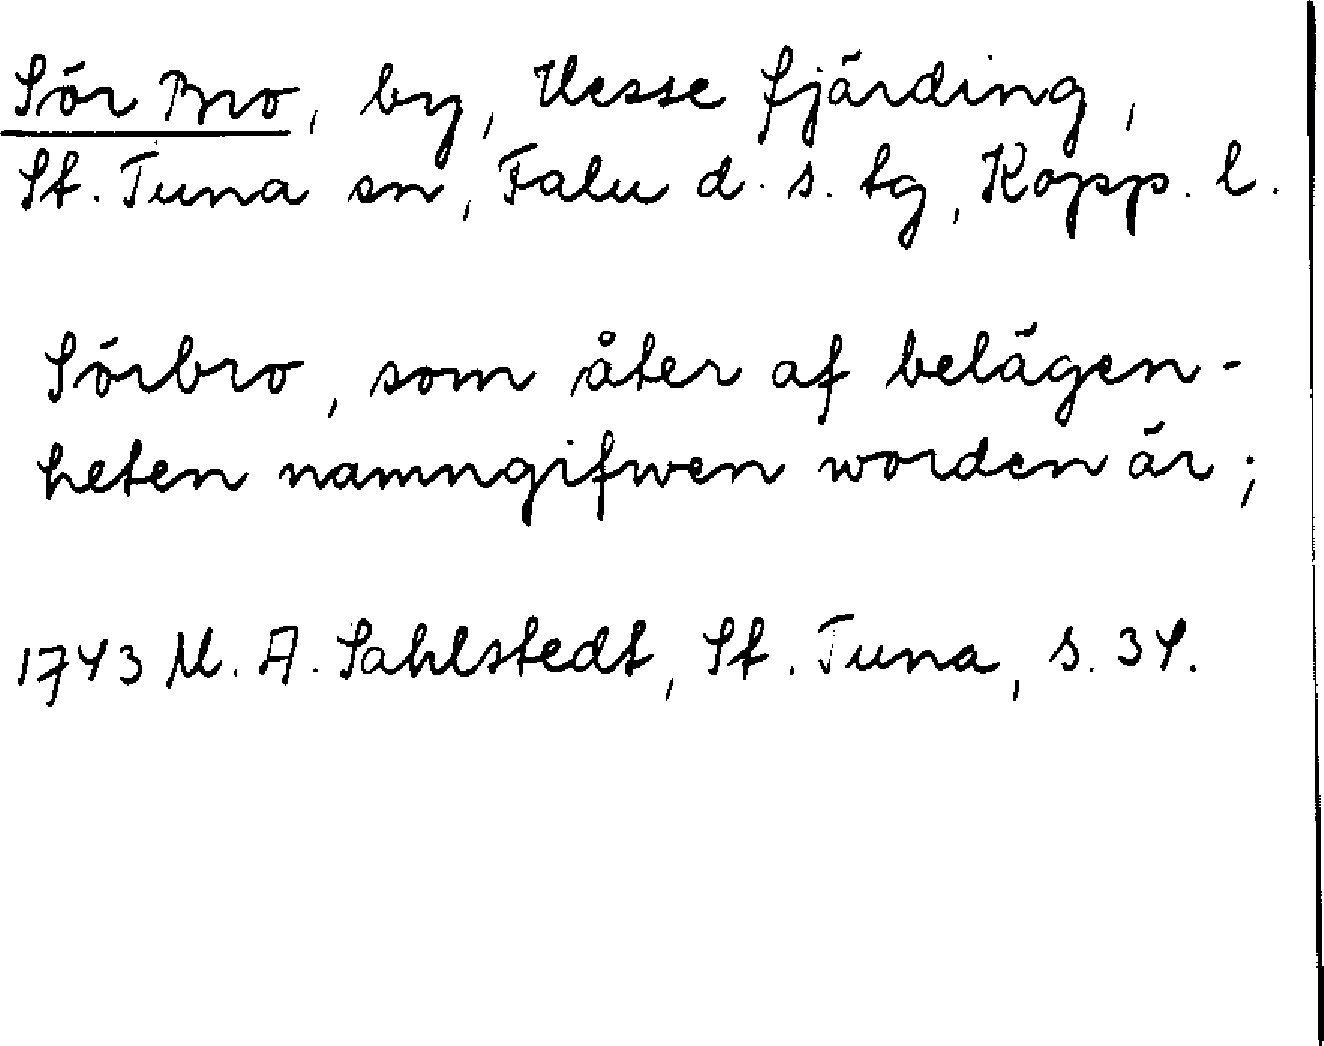 Sör Bro, by, Uesse fjärding,
St. Tuna sn, Falu d. s. tg, Kopp. l.
Sörbro, som åter af belägen-
heten namngifwen worden är;
1743 M. A. Sahlstedt, St. Tuna, s. 34.